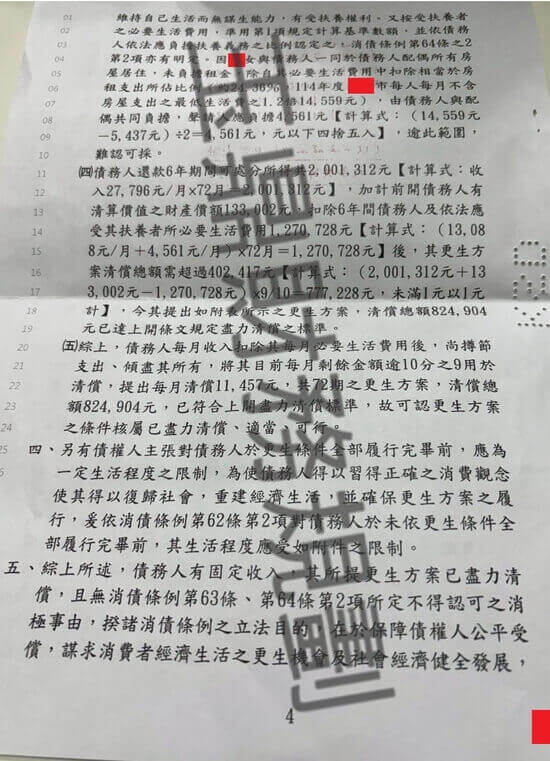 01 維持自己生活而無謀生能力，有受扶養權利。又按受扶養者
02 之必要生活費用，準用第1項規定計算基準數額，並依債務
03 人依法應負擔扶養義務之比例認定之，消債條例第64條之2
04 第2項亦有明定。因 女與債務人一同於債務人配偶所有房
05 屋居住，未負擔租金，除自其必要生活費用中扣除相當於房
06 租支出所佔比例（約24.36%，114年度 市每人每月不含
07 房屋支出之最低生活費之1.2倍14,559元），由債務人與配
08 偶共同負擔，聲請人應負擔4,561元【計算式：（14,559元
09 －5,437元）÷2＝4,561元，元以下四捨五入】，逾此範圍，
10 難認可採。
11 ㈣債務人還款6年期間可處分所得共2,001,312元【計算式：收
12 入27,796元/月x72月＝2,001,312元】，加計前開債務人有
13 清算價值之財產價額133,002元，扣除6年間債務人及依法應
14 受其扶養者所必要生活費用1,270,728元【計算式：（13,08
15 8元/月＋4,561元/月）x72月＝1,270,728元】後，其更生方
16 案清償總額需超過402,417元【計算式：（2,001,312元＋13
17 3,002元－1,270,728元）x9/10＝777,228元，未滿1元以1元
18 計】，今其提出如附表所示之更生方案，清償總額824,904
19 元已達上開條文規定盡力清償之標準。
20 ㈤綜上，債務人每月收入扣除其每月必要生活費用後，尚撙節
21 支出、傾盡其所有，將其目前每月剩餘金額逾10分之9用於
22 清償，提出每月清償11,457元，共72期之更生方案，清償總
23 額824,904元，已符合上開盡力清償標準，故可認更生方案
24 之條件核屬已盡力清償、適當、可行。
25 四、另有債權人主張對債務人於更生條件全部履行完畢前，應為
一定生活程度之限制，為使債務人得以習得正確之消費觀念
使其得以復歸社會，重建經濟生活，並確保更生方案之履
行，爰依消債條例第62條第2項對債務人於未依更生條件全
部履行完畢前，其生活程度應受如附件之限制。
五、綜上所述，債務人有固定收入，其所提更生方案已盡力清
償，且無消債條例第63條、第64條第2項所定不得認可之消
極事由，揆諸消債條例之立法目的，在於保障債權人公平受
償，謀求消費者經濟生活之更生機會及社會經濟健全發展，
4